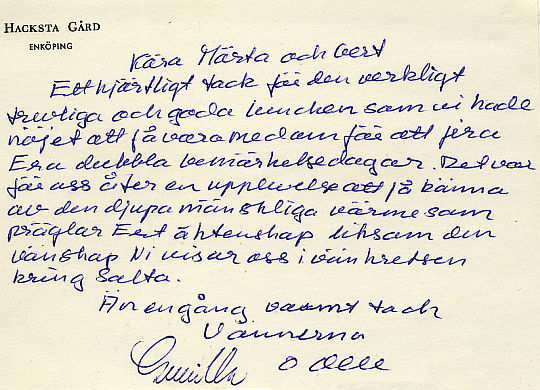 HACKSTA GÅRD
ENKÖPING
Kära Märta och Gert
Ett hjärtligt tack för den verkligt
trevliga och goda lunchen som vi hade
nöjet att få vara med om för att fira
Era dubbla bemärkelsedagar. Det var
för oss åter en upplevelse att få känna
av den djupa mänskliga värme som
präglar Ert äktenskap liksom den
vänskap Ni visar oss i vänkretsen
kring Salta.
Än en gång varmt tack
Vännerna
Gunilla o Olle